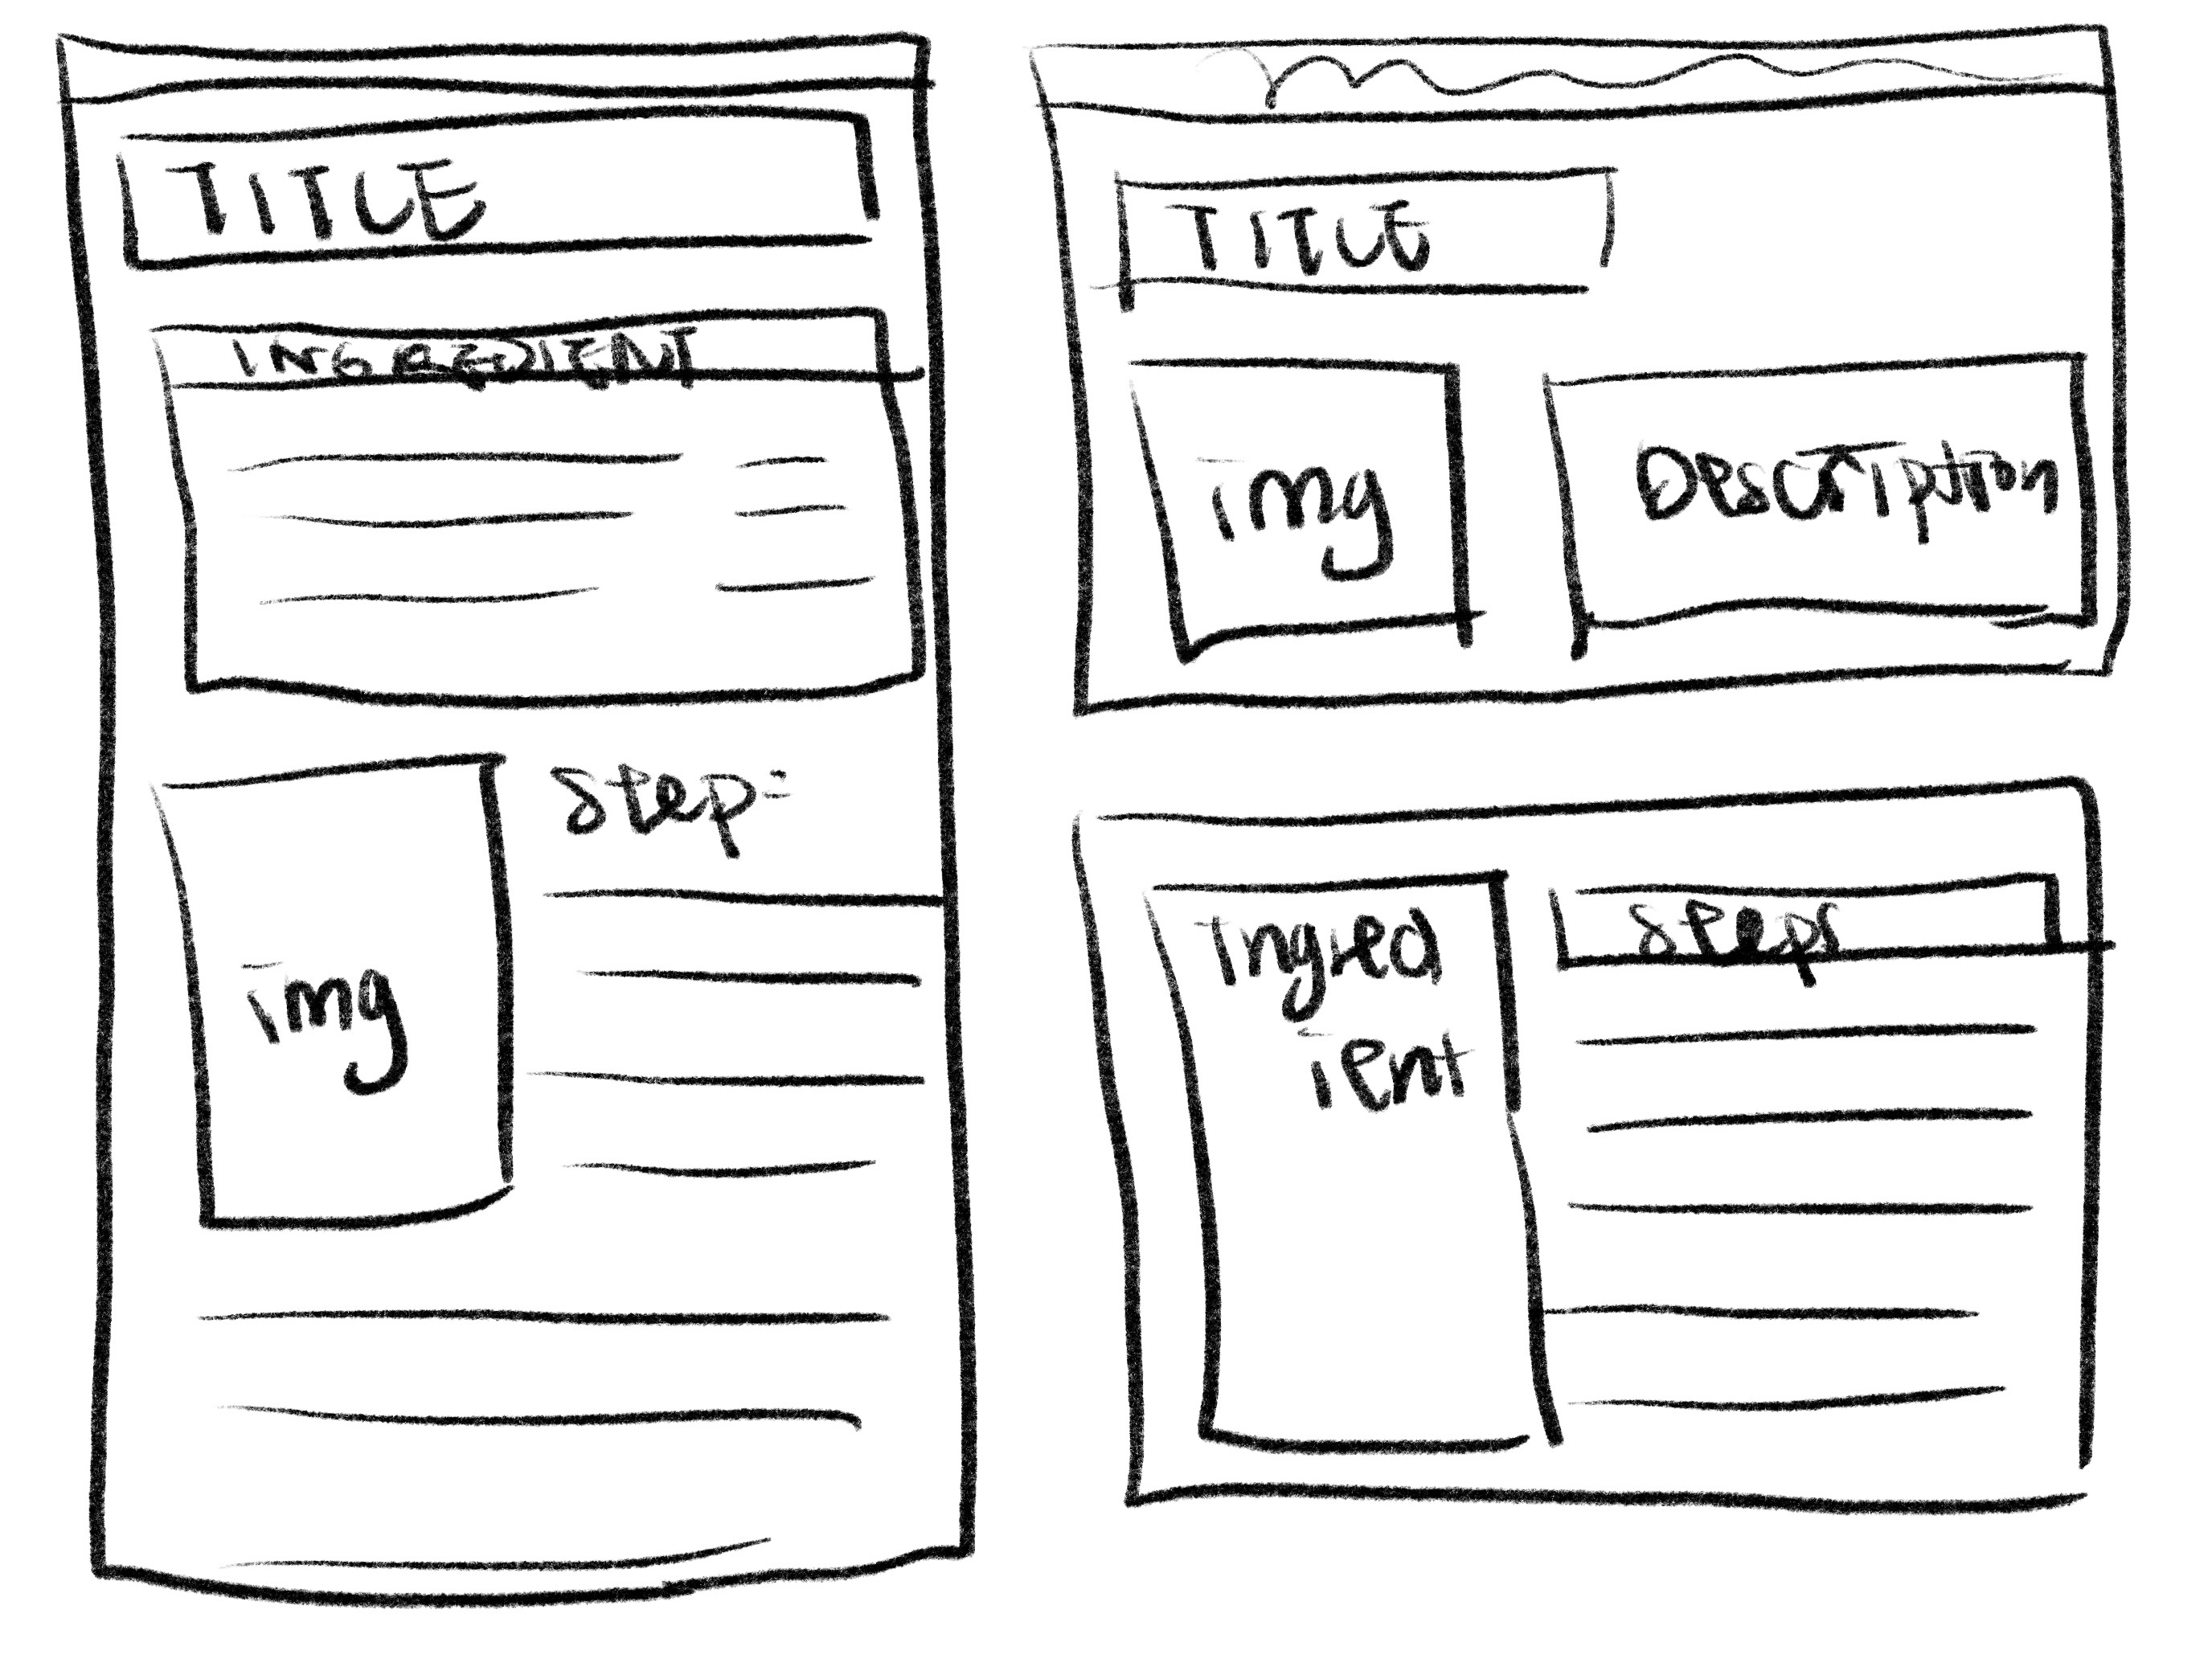 TITLE
INGREDIENT
img
Step:
TITLE
img
Description
ingred
ient
Steps